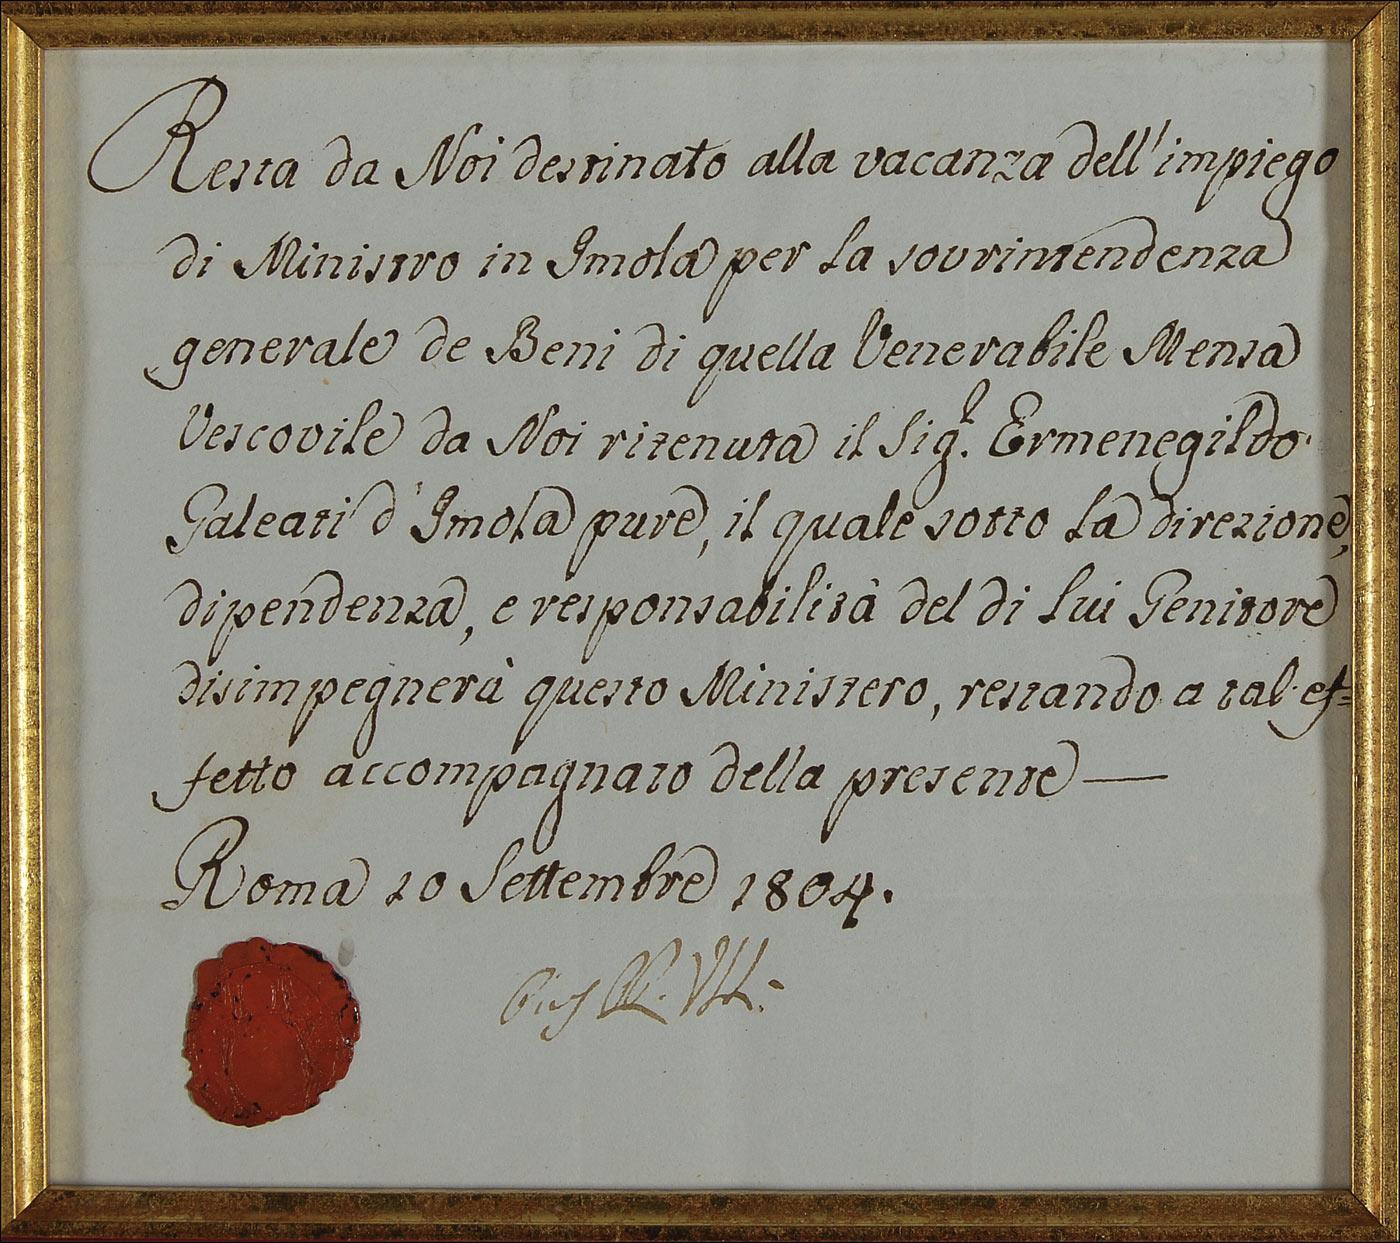 Resta da Noi destinato alla vacanza dell'impiego
di Ministro in Imola per la sovrintendenza
generale de Beni di quella Venerabile Mensa
Vescovile da Noi ritenuta il Sigr. Ermenegildo
Galeati d'Imola pure, il quale sotto la direzione,
dipendenza, e responsabilità del di lui Genitore
disimpegnerà questo Ministero, restando a tal ef=
fetto accompagnato della presente —
Roma 10 Settembre 1804.
Pius PP. VII.